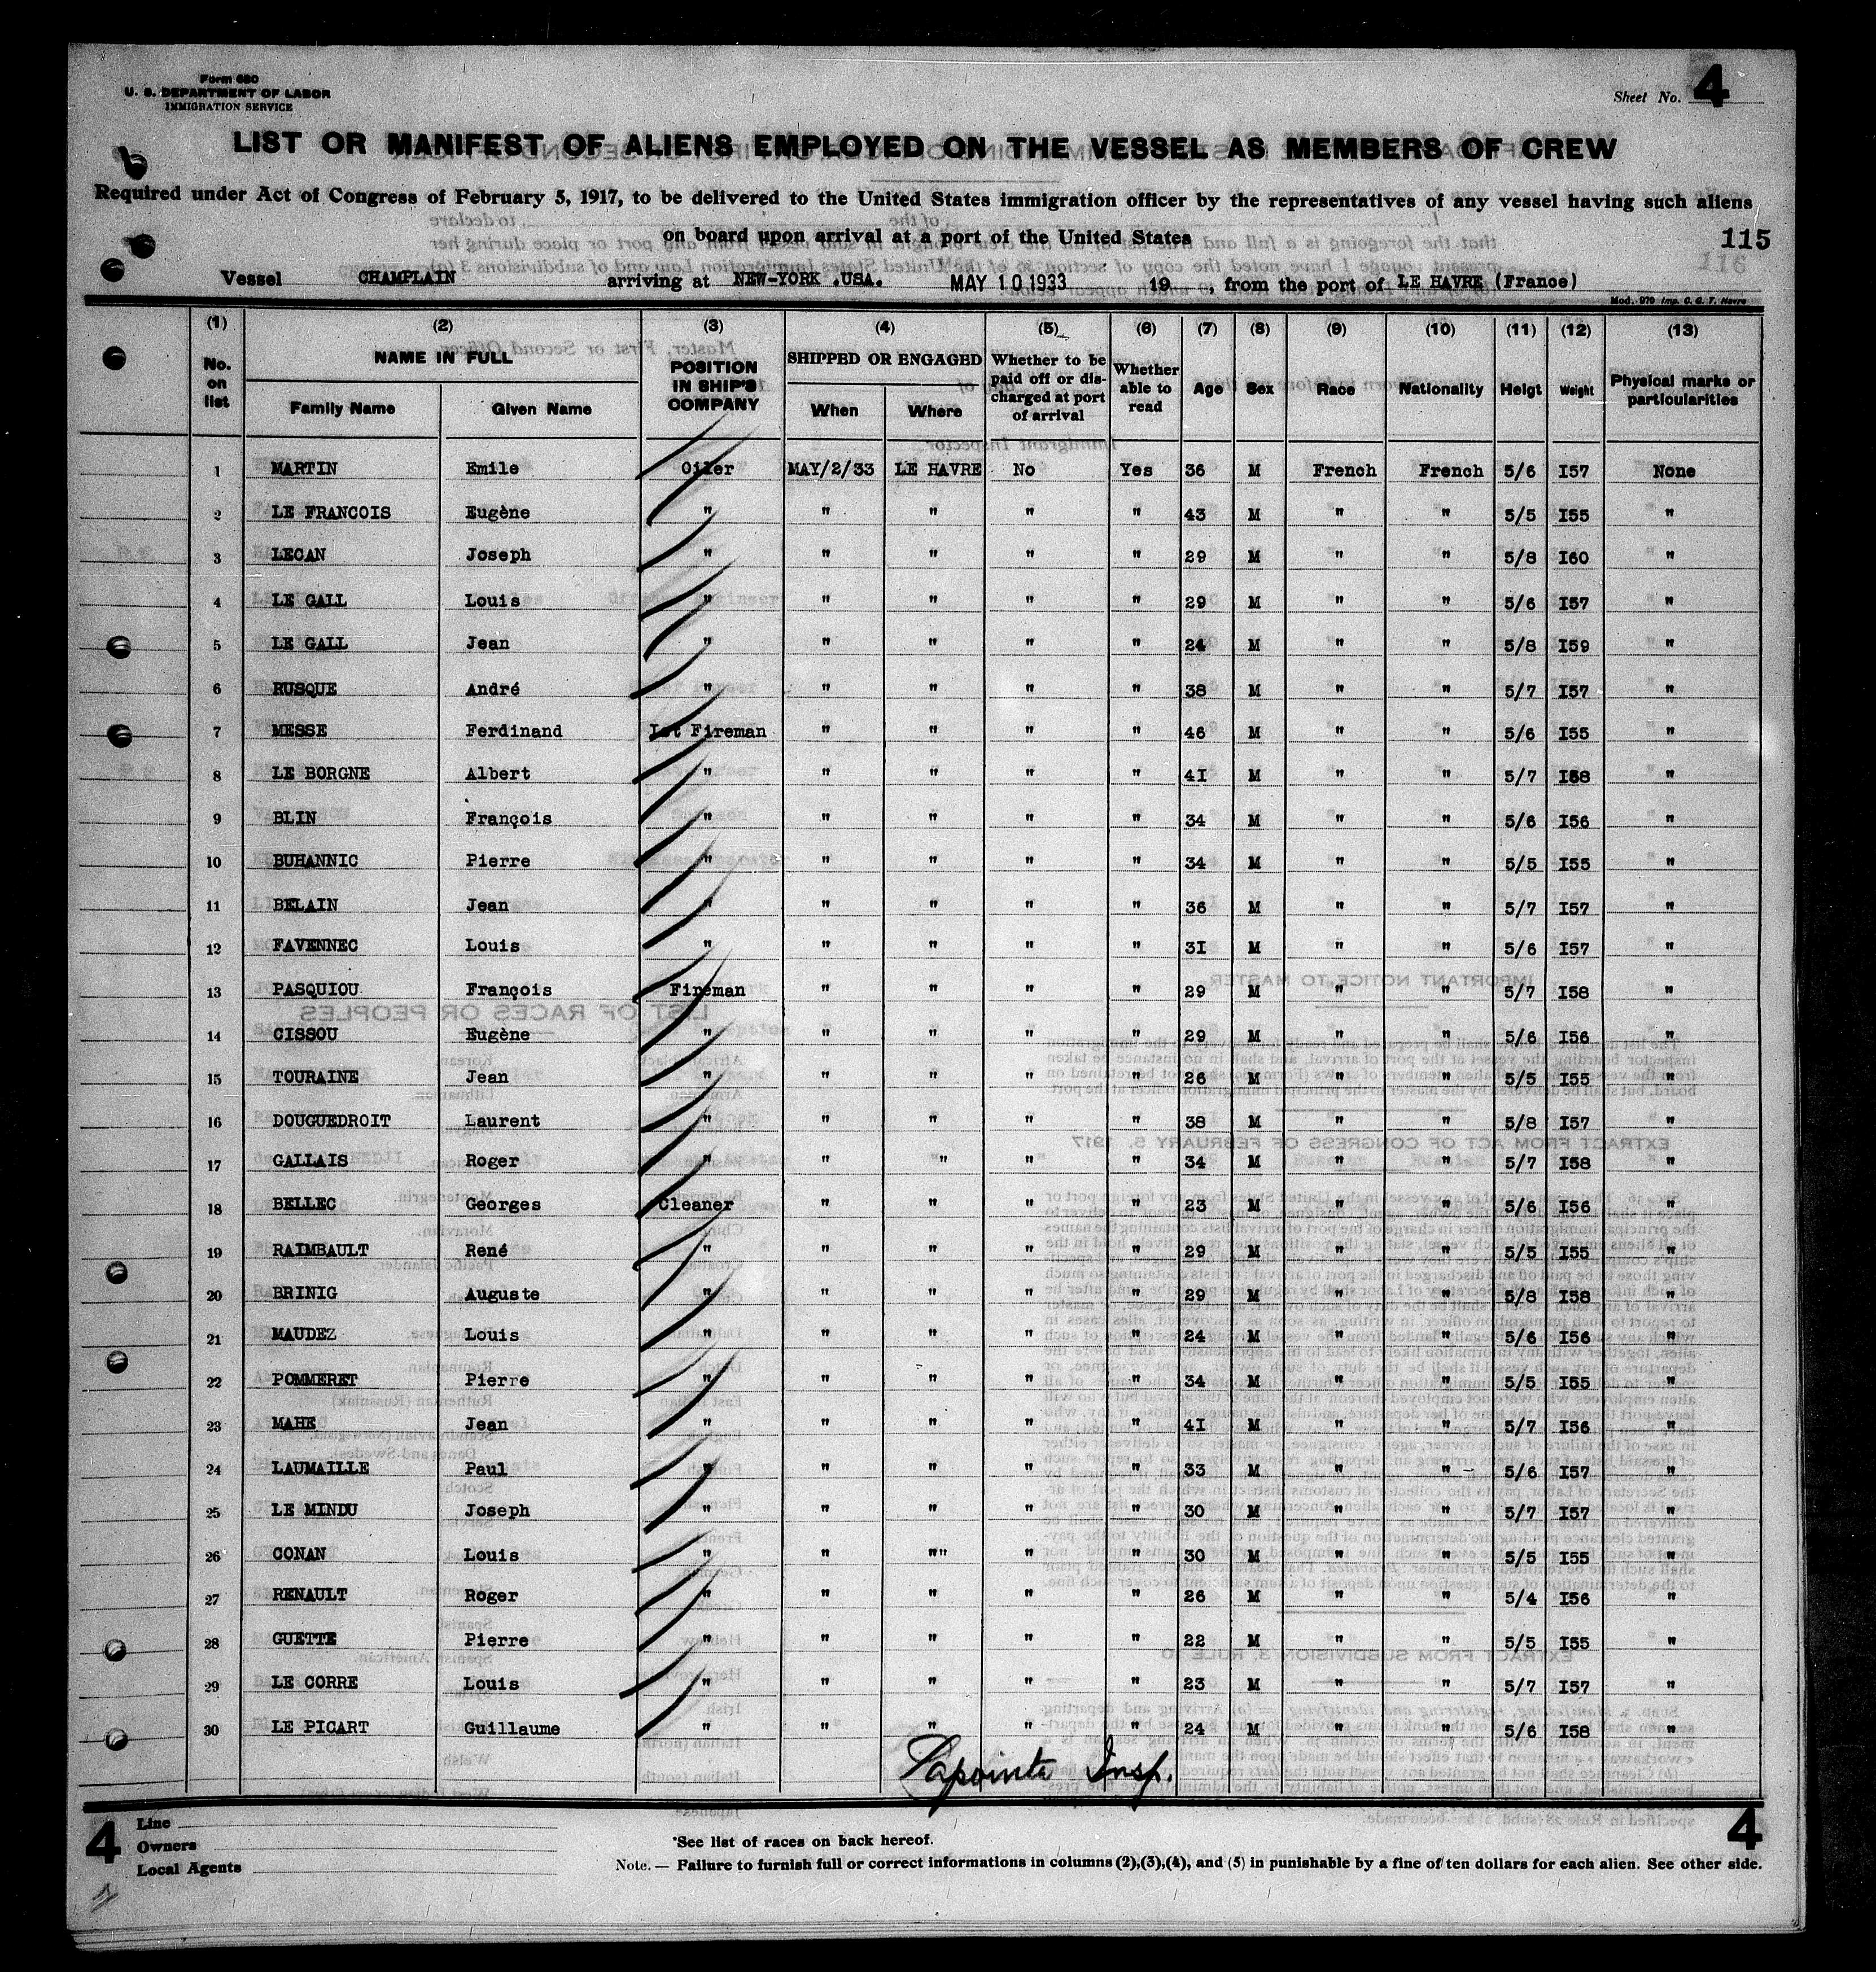 Form 680
U. S. DEPARTMENT OF LABOR
IMMIGRATION SERVICE
Sheet No. 4
LIST OR MANIFEST OF ALIENS EMPLOYED ON THE VESSEL AS MEMBERS OF CREW
Required under Act of Congress of February 5, 1917, to be delivered to the United States immigration officer by the representatives of any vessel having such aliens
on board upon arrival at a port of the United States
115
116
Vessel CHAMPLAIN arriving at NEW-YORK .USA. MAY 10 1933 19 , from the port of LE HAVRE (France)
Mod. 970 Imp. C. G. T. Havre
(1) (2) (3) (4) (5) (6) (7) (8) (9) (10) (11) (12) (13)
No. on list NAME IN FULL Family Name Given Name POSITION IN SHIP'S COMPANY SHIPPED OR ENGAGED When Where Whether to be paid off or discharged at port of arrival Whether able to read Age Sex Race Nationality Heigt Weight Physical marks or particularities
1 MARTIN Emile Oiler MAY/2/33 LE HAVRE No Yes 36 M French French 5/6 I57 None
2 LE FRANCOIS Eugène " " " " " 43 M " " 5/5 I55 "
3 LECAN Joseph " " " " " 29 M " " 5/8 I60 "
4 LE GALL Louis " " " " " 29 M " " 5/6 I57 "
5 LE GALL Jean " " " " " 24 M " " 5/8 I59 "
6 RUSQUE André " " " " " 38 M " " 5/7 I57 "
7 MESSE Ferdinand Ist Fireman " " " " 46 M " " 5/6 I55 "
8 LE BORGNE Albert " " " " " 4I M " " 5/7 I58 "
9 BLIN François " " " " " 34 M " " 5/6 I56 "
10 BUHANNIC Pierre " " " " " 34 M " " 5/5 I55 "
11 BELAIN Jean " " " " " 36 M " " 5/7 I57 "
12 FAVENNEC Louis " " " " " 3I M " " 5/6 I57 "
13 PASQUIOU François Fireman " " " " 29 M " " 5/7 I58 "
14 CISSOU Eugène " " " " " 29 M " " 5/6 I56 "
15 TOURAINE Jean " " " " " 26 M " " 5/5 I55 "
16 DOUGUEDROIT Laurent " " " " " 38 M " " 5/8 I57 "
17 GALLAIS Roger " " "" " " 34 M " " 5/7 I58 "
18 BELLEC Georges Cleaner " " " " 23 M " " 5/6 I56 "
19 RAIMBAULT René " " " " " 29 M " " 5/5 I55 "
20 BRINIG Auguste " " " " " 29 M " " 5/8 I58 "
21 MAUDEZ Louis " " " " " 24 M " " 5/6 I56 "
22 POMMERET Pierre " " " " " 34 M " " 5/5 I55 "
23 MAHE Jean " " " " " 4I M " " 5/7 I56 "
24 LAUMAILLE Paul " " " " " 33 M " " 5/6 I57 "
25 LE MINDU Joseph " " " " " 30 M " " 5/7 I57 "
26 CONAN Louis " " "" " " 30 M " " 5/5 I55 "
27 RENAULT Roger " " " " " 26 M " " 5/4 I56 "
28 GUETTE Pierre " " " " " 22 M " " 5/5 I55 "
29 LE CORRE Louis " " " " " 23 M " " 5/7 I57 "
30 LE PICART Guillaume " " " " " 24 M " " 5/6 I58 "
Lapointe Insp.
4 Line
Owners
Local Agents
*See list of races on back hereof.
Note. — Failure to furnish full or correct informations in columns (2),(3),(4), and (5) in punishable by a fine of ten dollars for each alien. See other side.
4